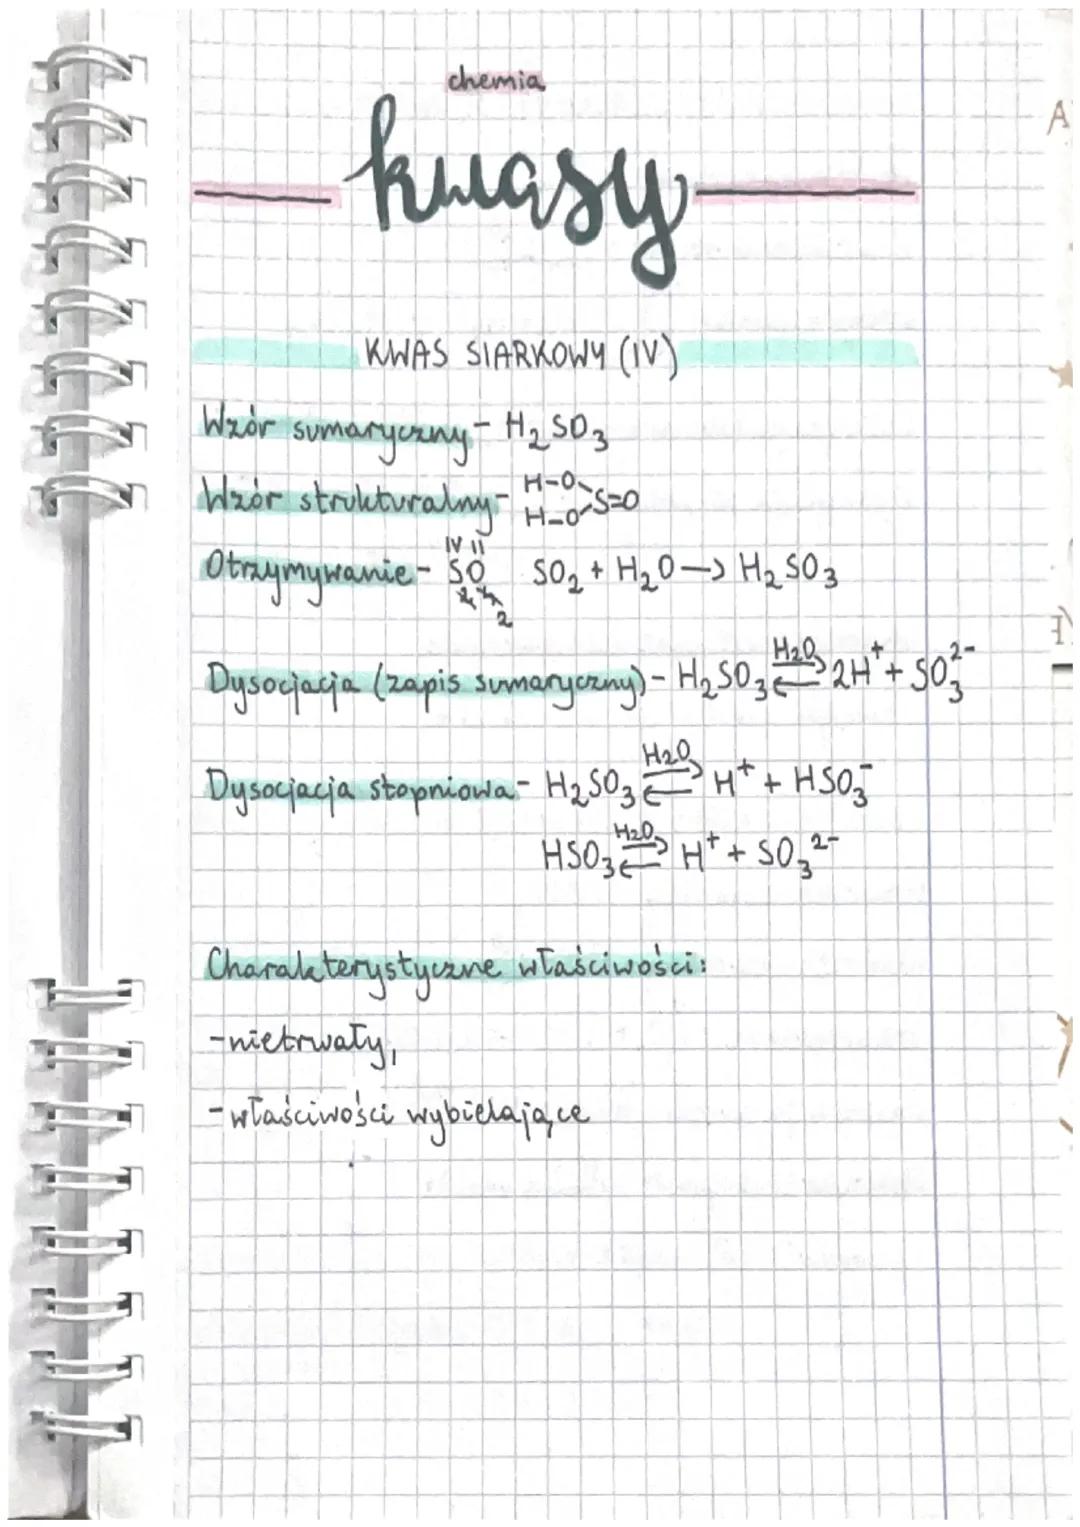 chemia
kwasy
KWAS SIARKOWY (IV)
Wzór sumaryczny - H₂SO₃
Wzór strukturalny - H-O
H-O S=O
Otrzymywanie - IV II
SO SO₂ + H₂O → H₂SO₃
2
Dysocjacja (zapis sumaryczny) - H₂SO₃ ⇄ H₂O 2H⁺ + SO₃²⁻
Dysocjacja stopniowa - H₂SO₃ ⇄ H₂O H⁺ + HSO₃⁻
HSO₃ ⇄ H₂O H⁺ + SO₃²⁻
Charakterystyczne właściwości:
-nietrwały,
-właściwości wybielające